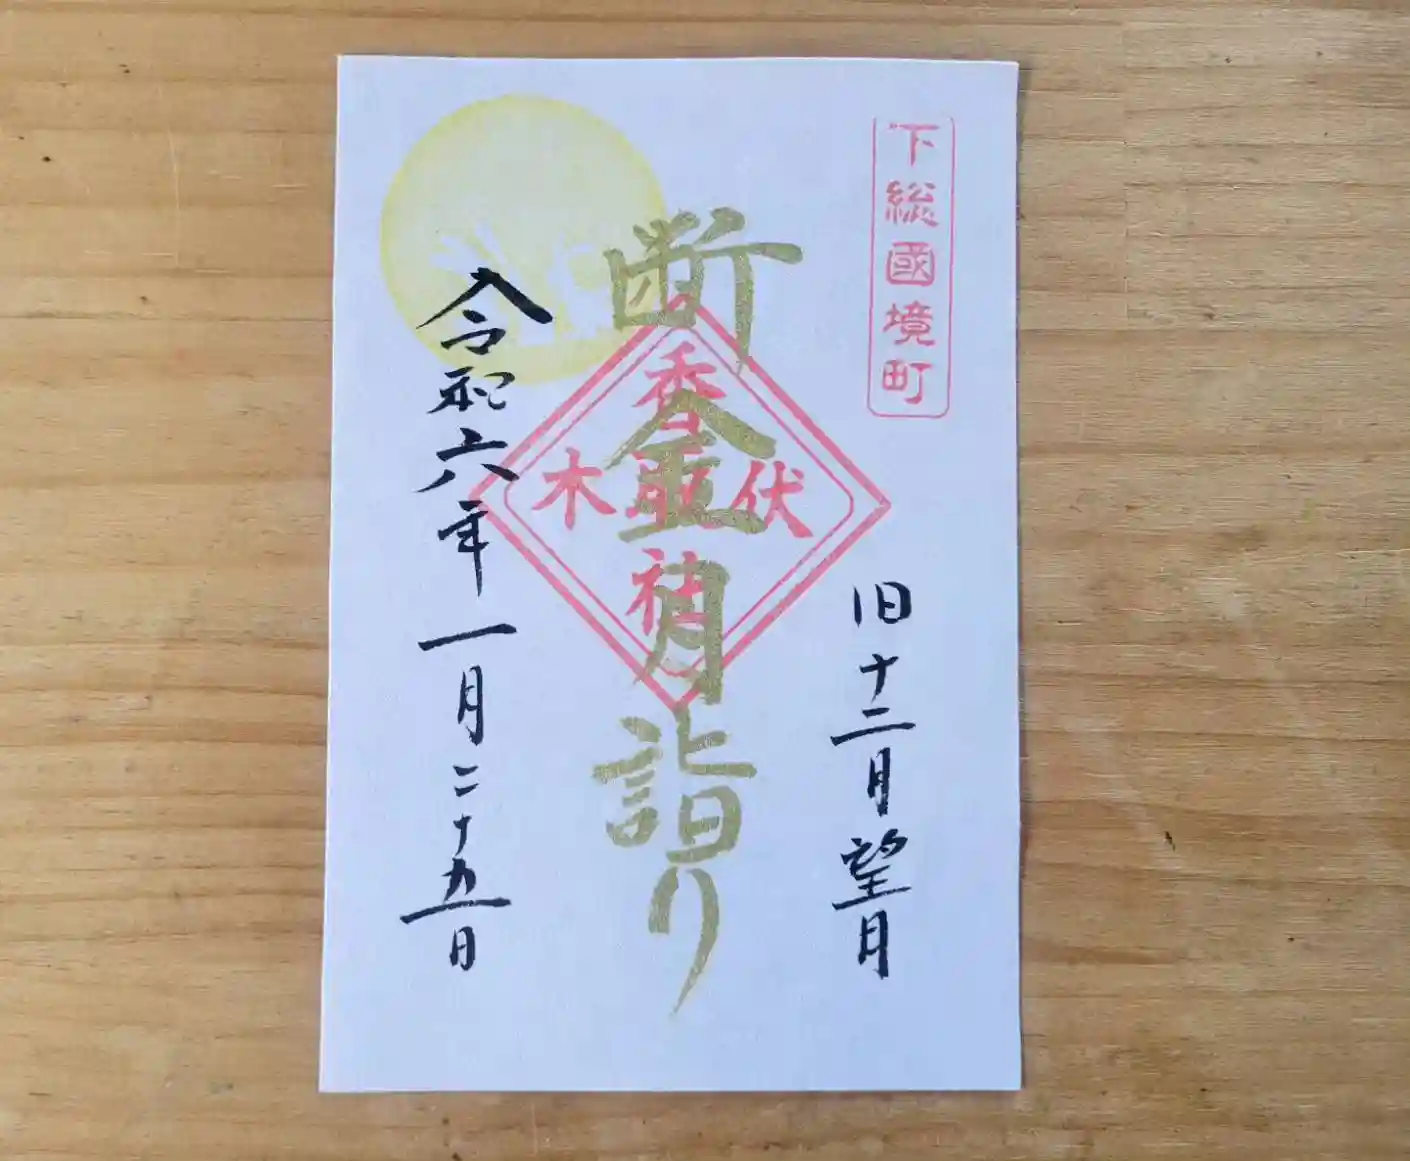 下総國境町
旧十二月望月
断金月詣り
伏木
香取社
令和六年一月二十五日